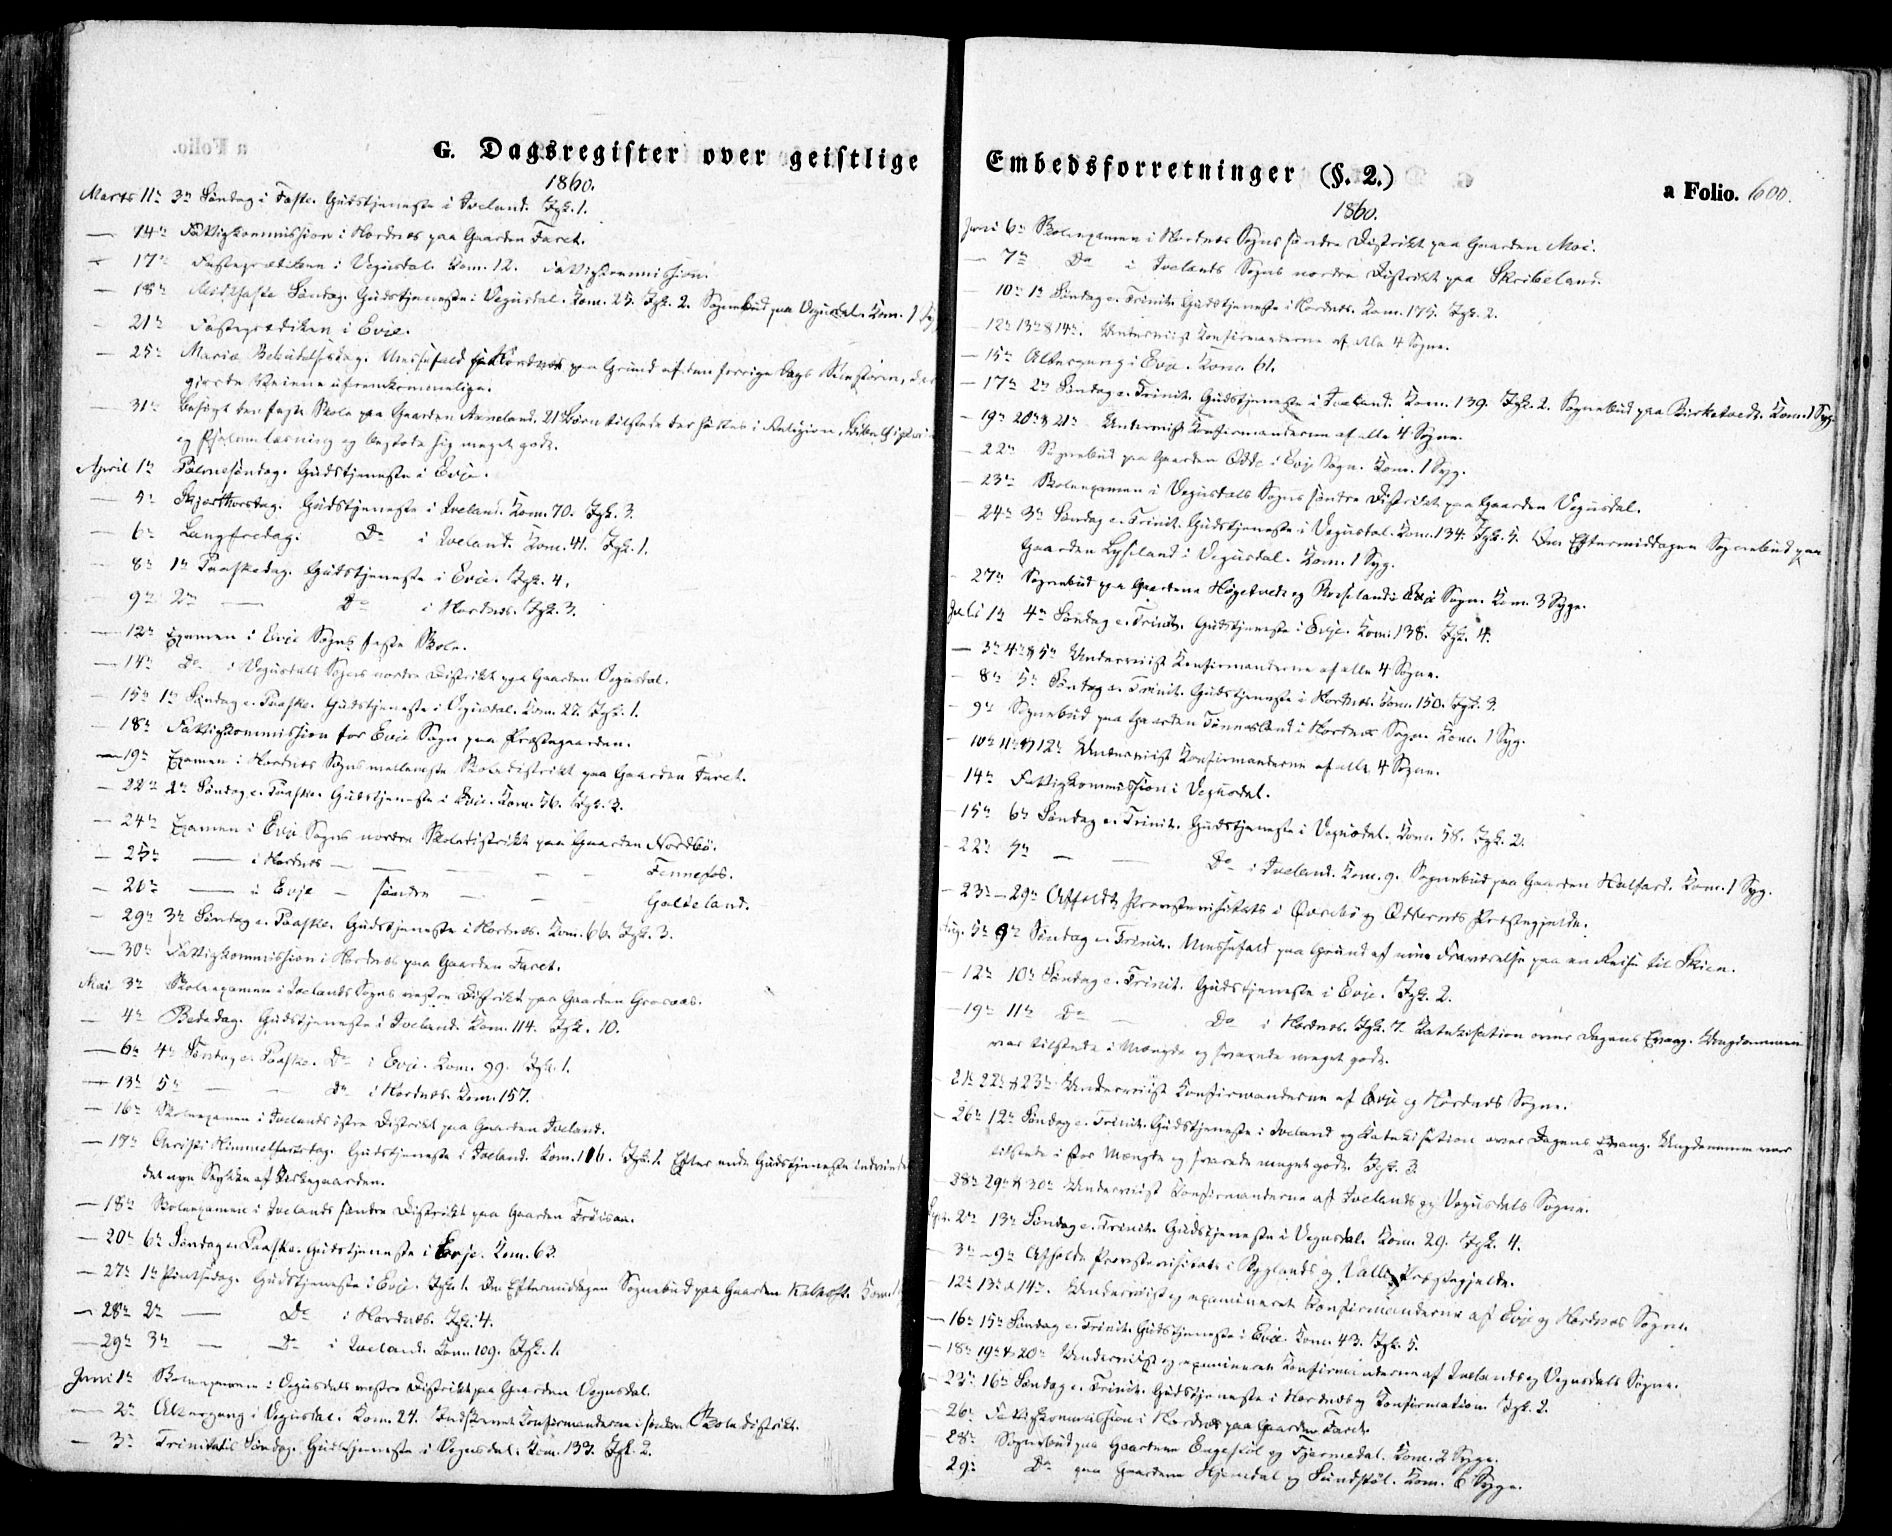 G. Dagsregister over geistlige
1860.
Marts 11te 3die Søndag i Faste. Gudstjeneste i Iveland. Jgk. 1.
— 14de Fattigkommission i Hordnes paa Gaarden Faret.
— 17de Fasteprædiken i Vegusdal. Kom. 12. Fattigkommission.
— 18de Midfaste Søndag. Gudstjeneste i Vegusdal. Kom. 25. Jgk. 2. Sognebud paa Vegusdal. Kom. 1 Syg
— 21de Fasteprædiken i Evje.
— 25de Mariæ Bebudelsesdag. Messefald i Hordnes paa Grund af den forrige Dags Snestorm, der
gjorde Veiene ufremkommelige.
— 31te Besøgt den faste Skole paa Gaarden Arneland. 21 Børn tilstede der hørtes i Religion, Bibelhistorie
og Psalmelæsning og beg sig meget godt.
April 1te Palmesøndag. Gudstjeneste i Evje.
— 5te Skjærthorsdag. Gudstjeneste i Iveland. Kom. 70. Jgk. 3.
— 6te Langfredag. Do i Iveland. Kom. 41. Jgk. 1.
— 8de 1te Paaskedag. Gudstjeneste i Evje. Jgk. 4.
— 9de 2den — Do i Hordnes. Jgk. 3.
— 12te Examen i Evje Sogns faste Skole.
— 14de Do i Vegusdals Sogns nordre Distrikt paa Gaarden Vegusdal.
— 15de 1te Søndag e. Paaske. Gudstjeneste i Vegusdal. Kom. 27. Jgk. 1.
— 18de Fattigkommission for Evje Sogn paa Præstegaarden.
— 19de Examen i Hordnes Sogns mellemste Skoledistrikt paa Gaarden Faret.
— 22de 2den Søndag e. Paaske. Gudstjeneste i Evje. Kom. 56. Jgk. 2.
— 24de Examen i Evje Sogns nordre Skoledistrikt paa Gaarden Nordbö.
— 25de — i Hordnes — — — — Fennefos.
— 26de — i Evje — søndre — — — Galteland.
— 29de 3die Søndag e. Paaske. Gudstjeneste i Hordnes. Kom. 66. Jgk. 3.
— 30te Fattigkommission i Hordnes paa Gaarden Faret.
Mai 3die Skoleexamen i Ivelands Sogns vestre Distrikt paa Gaarden Grosaas.
— 4de Bededag. Gudstjeneste i Iveland. Kom. 114. Jgk. 10.
— 6te 4de Søndag e. Paaske. Do i Evje. Kom. 99. Jgk. 1.
— 13de 5te — — Do i Hordnes. Kom. 157.
— 16de Skoleexamen i Ivelands østre Distrikt paa Gaarden Iveland.
— 17de Christi Himmelfartsdag. Gudstjeneste i Iveland. Kom. 116. Jgk. 1. Efter endt Gudstjeneste indviedes
det nye Stykke af Kirkegaarden.
— 18de Skoleexamen i Ivelands søndre Distrikt paa Gaarden Fröisaa.
— 20de 6te Søndag e. Paaske. Gudstjeneste i Evje. Kom. 63.
— 27de 1te Pintsedag. Gudstjeneste i Evje. Jgk. 1. Om Eftermiddagen Sognebud paa Gaarden Kom. 1
— 28de 2den — Do i Hordnes. Jgk. 4.
— 29de 3die — Do i Iveland. Kom. 109. Jgk. 1.
Juni 1te Skoleexamen i Vegusdals vestre Distrikt paa Gaarden Vegusdal.
— 2den Altergang i Vegusdal. Kom. 24. Indskrevet Konfirmanderne i søndre Skoledistrikt.
— 3die Trinitatis Søndag. Gudstjeneste i Vegusdal. Kom. 133. Jgk. 2.
Embedsforretninger (§. 2.)
a Folio. 600.
1860.
Juni 6te Skoleexamen i Hordnes Sogns søndre Distrikt paa Gaarden Moi.
— 7de Do i Ivelands Sogns nordre Distrikt paa Skribeland.
— 10de 1te Søndag e. Trinit. Gudstjeneste i Hordnes. Kom. 175. Jgk. 2.
— 12te 13de & 14de. Underviist Konfirmanderne af alle 4 Sogne.
— 15de Altergang i Evje. Kom. 61.
— 17de 2den Søndag e. Trinit. Gudstjeneste i Iveland. Kom. 139. Jgk. 2. Sognebud paa Birketvedt. Kom. 1 Syg.
— 19de 20de & 21de Underviist Konfirmanderne af alle 4 Sogne.
— 22de Sognebud paa Gaarden Odde i Evje Sogn. Kom. 1 Syg.
— 23de Skoleexamen i Vegusdals Sogns søndre Distrikt paa Gaarden Vegusdal.
— 24de 3die Søndag e. Trinit. Gudstjeneste i Vegusdal. Kom. 134. Jgk. 5. Om Eftermiddagen Sognebud paa
Gaarden Lyseland i Vegusdal. Kom. 1 Syg.
— 27de Sognebud paa Gaardene Högetvedt og i Evje Sogn. Kom. 3 Syge.
Juli 1te 4de Søndag e. Trinit. Gudstjeneste i Evje. Kom. 138. Jgk. 4.
— 3die 4de & 5te Underviist Konfirmanderne af alle 4 Sogne.
— 8de 5te Søndag e. Trinit. Gudstjeneste i Hordnes. Kom. 150. Jgk. 3.
— 9de Sognebud paa Gaarden Tønnesland i Hordnes Sogn. Kom. 1 Syg.
— 10de 11te & 12te Underviist Konfirmanderne af alle 4 Sogne.
— 14de Fattigkommission i Vegusdal.
— 15de 6te Søndag e. Trinit. Gudstjeneste i Vegusdal. Kom. 58. Jgk. 2.
— 22de 7de — — Do i Iveland. Kom. 9. Sognebud paa Gaarden Kom. 1 Syg.
— 23de–29de Afholdt Provstevisitats i og Præstegjelde.
Aug. 5te 9de Søndag e. Trinit. Messefald paa Grund af min Fraværelse paa en Reise til Skien.
— 12te 10de Søndag e. Trinit. Gudstjeneste i Evje. Jgk. 2.
— 19de 11te Do — Do i Hordnes. Jgk. 7. Katekisation over Dagens Evang. Ungdommen
var tilstede i Mængde og svarede meget godt.
— 21de 22de & 23de Underviist Konfirmanderne af Evje og Hordnes Sogne.
— 26de 12te Søndag e. Trinit. Gudstjeneste i Iveland og Katekisation over Dagens Evang. Ungdommen var
tilstede i stor Mængde og svarede meget godt. Jgk. 3.
— 28de 29de & 30te Underviist Konfirmanderne af Ivelands og Vegusdals Sogne.
Sept. 2den 13de Søndag e. Trinit. Gudstjeneste i Vegusdal. Kom. 29. Jgk. 4.
— 3die–9de Afholdt Provstevisitats i Byglands og Valle Præstegjelde.
— 12te 13de & 14de. Underviist og examineret Konfirmanderne af Evje og Hordnes Sogne.
— 16de 15de Søndag e. Trinit. Gudstjeneste i Evje. Kom. 43. Jgk. 5.
— 18de 19de & 20de Underviist og examineret Konfirmanderne af Ivelands og Vegusdals Sogne.
— 23de 16de Søndag e. Trinit. Gudstjeneste i Hordnes og Konfirmation. Jgk. 2.
— 26de Fattigkommission i Hordnes paa Gaarden Faret.
— 28de Sognebud paa Gaardene Engestöl og Fjermedal. Kom. 2 Syge.
— 29de Do paa Gaardene Hjemdal og Sundstöl. Kom. 6 Syge.